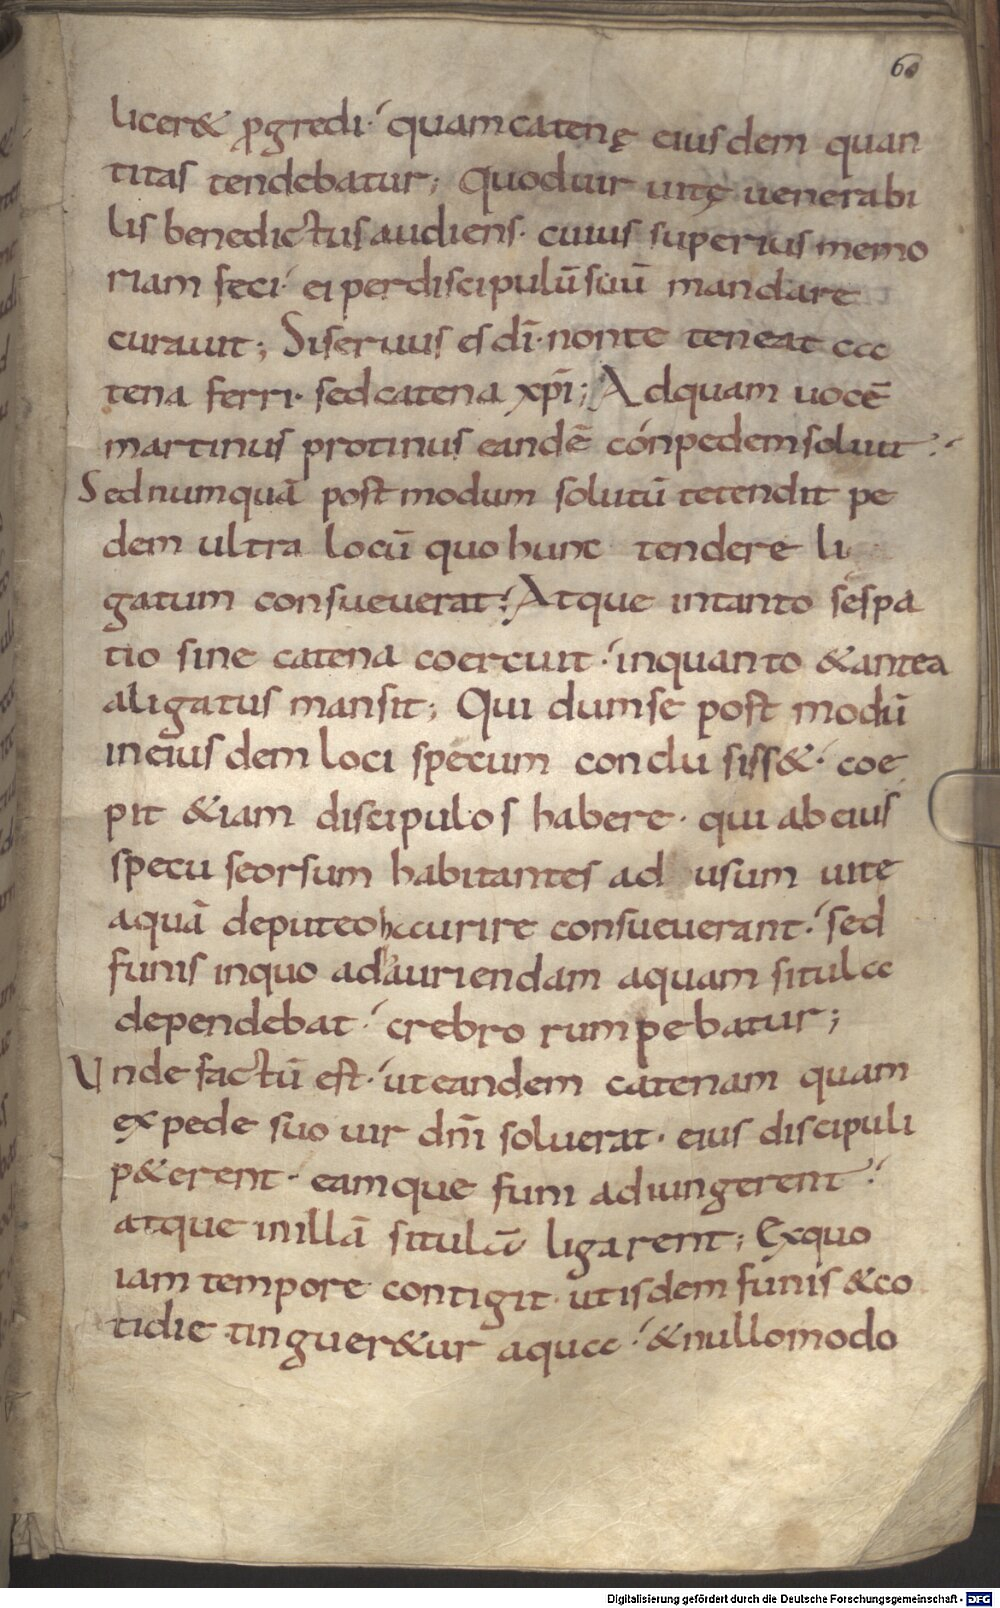 60
licer& ꝓgredi· quam catenę eiusdem quan
titas tendebatur; Quod uir uitę uenerabi
lis benedictus audiens· cuius superius memo
riam feci· ei per discipulū suū mandare
curauit; Si seruus es dī· non te teneat ca
tena ferri· sed catena xp̄i; Ad quam uocē
martinus protinus eandē conpedem soluit·
Sed numquā postmodum solutū tetendit pe
dem ultra locū quo hunc tendere li
gatum consueuerat· Atque in tanto se spa
tio sine catena coercuit· in quanto & antea
aligatus mansit; Qui dum se post modū
in eiusdem loci specum conclusiss&· coe
pit &iam discipulos habere· qui ab eius
specu seorsum habitantes ad usum uite
aquā de puteo haurire consueuerant· sed
funis in quo ad hauriendam aquam situla
dependebat· crebro rumpebatur;
Unde factū est· ut eandem catenam quam
ex pede suo uir dn̄i soluerat· eius discipuli
p&erent· eamque funi adiungerent·
atque in illā situlā ligarent; Ex quo
iam tempore contigit· ut isdem funis & co
tidie tinguer&ur aqua· & nullo modo
Digitalisierung gefördert durch die Deutsche Forschungsgemeinschaft - DFG